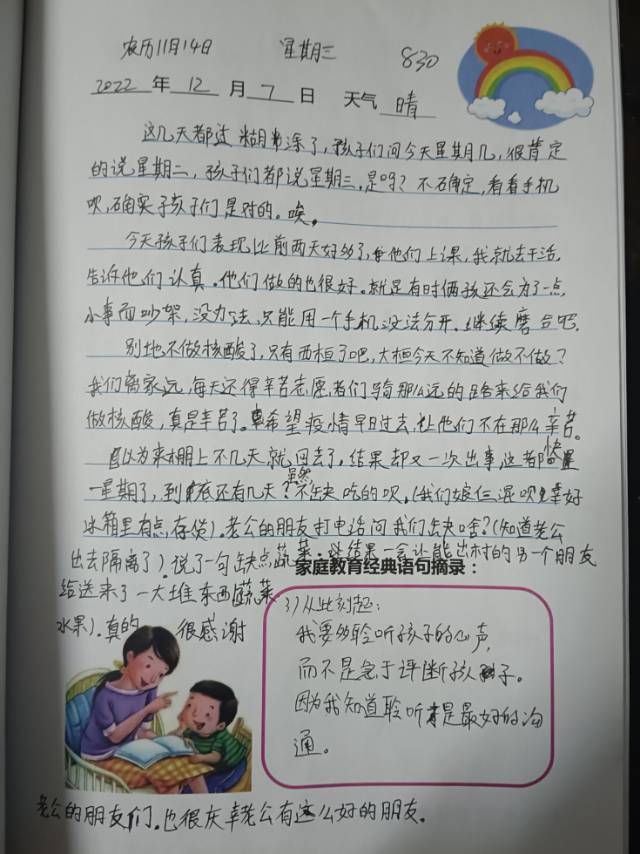 农历11月14日 星期三 830
2022年12月7日 天气 晴
这几天都过糊涂了,孩子们问今天星期几,很肯定
的说星期二,孩子们都说星期三,是吗?不确定,看看手机
呗,确实孩子们是对的。唉。
今天孩子们表现比前两天好多了,他们上课,我就去干活。
告诉他们认真。他们做的也很好。就是有时俩孩还会为了一点
小事而吵架,没办法,只能用一个手机没法分开。继续磨合吧。
别地不做核酸了,只有西桓了吧,大桓今天不知道做不做?
我们离家远,每天还得辛苦志愿者们跑那么远的路来给我们
做核酸,真是辛苦了。希望疫情早日过去,让他们不在那么辛苦。
自以为来棚上不几天就回去了,结果却又一次出事,这都快
一星期了,到底还有几天?虽然不缺吃的呗,(我们娘仨混呗幸好
冰箱里有点存货)。老公的朋友打电话问我们缺啥?(知道老公
出去隔离了)。说了一句缺点蔬菜,结果一会让能出村的另一个朋友
给送来了一大堆东西(蔬菜
水果)。真的很感谢
老公的朋友们。也很庆幸老公有这么好的朋友。
家庭教育经典语句摘录:
3)从此刻起:
我要多聆听孩子的心声,
而不是急于评断孩子。
因为我知道聆听才是最好的沟
通。